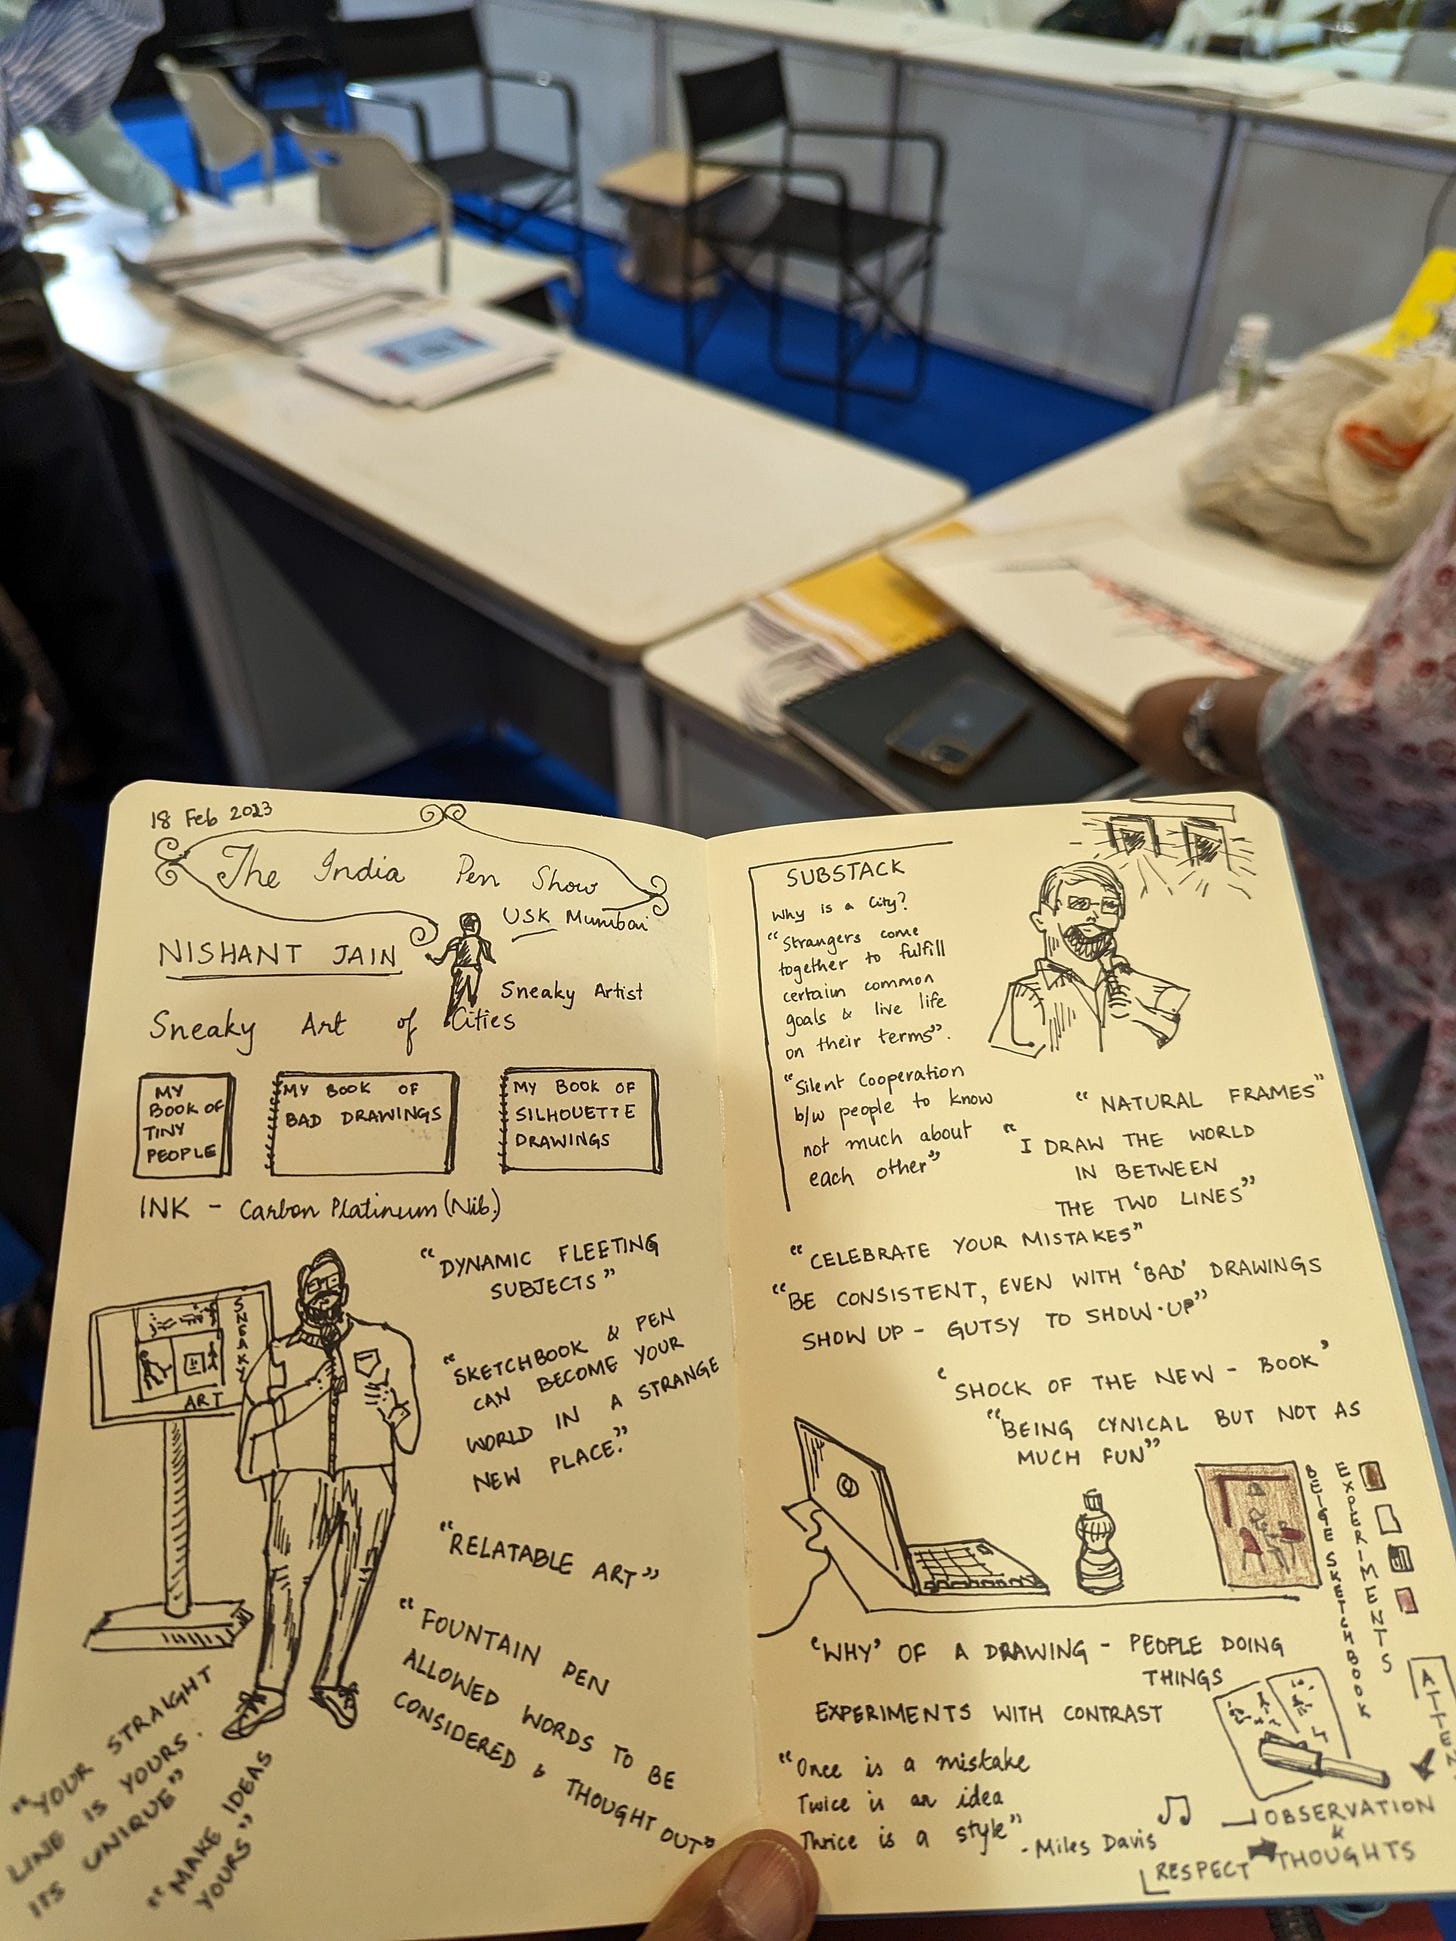 18 Feb 2023
The India Pen Show
USK Mumbai
NISHANT JAIN
Sneaky Artist
Sneaky Art of Cities
MY
BOOK OF
TINY
PEOPLE
MY BOOK OF
BAD DRAWINGS
MY BOOK OF
SILHOUETTE
DRAWINGS
INK - Carbon Platinum (Nib)
"DYNAMIC FLEETING
SUBJECTS"
SNEAKY
ART
"SKETCHBOOK & PEN
CAN BECOME YOUR
WORLD IN A STRANGE
NEW PLACE."
"RELATABLE ART"
"FOUNTAIN PEN
ALLOWED WORDS TO BE
CONSIDERED & THOUGHT OUT"
"YOUR STRAIGHT
LINE IS YOURS.
ITS UNIQUE"
"MAKE IDEAS
YOURS"
SUBSTACK
Why is a City?
"Strangers come
together to fulfill
certain common
goals & live life
on their terms".
"Silent Cooperation
b/w people to know
not much about
each other"
"NATURAL FRAMES"
"I DRAW THE WORLD
IN BETWEEN
THE TWO LINES"
"CELEBRATE YOUR MISTAKES"
"BE CONSISTENT, EVEN WITH 'BAD' DRAWINGS
SHOW UP - GUTSY TO SHOW·UP"
'SHOCK OF THE NEW - BOOK'
"BEING CYNICAL BUT NOT AS
MUCH FUN"
BEIGE SKETCHBOOK
EXPERIMENTS
'WHY' OF A DRAWING - PEOPLE DOING
THINGS
EXPERIMENTS WITH CONTRAST
"Once is a mistake
Twice is an idea
Thrice is a style"
- Miles Davis
OBSERVATION
&
THOUGHTS
RESPECT